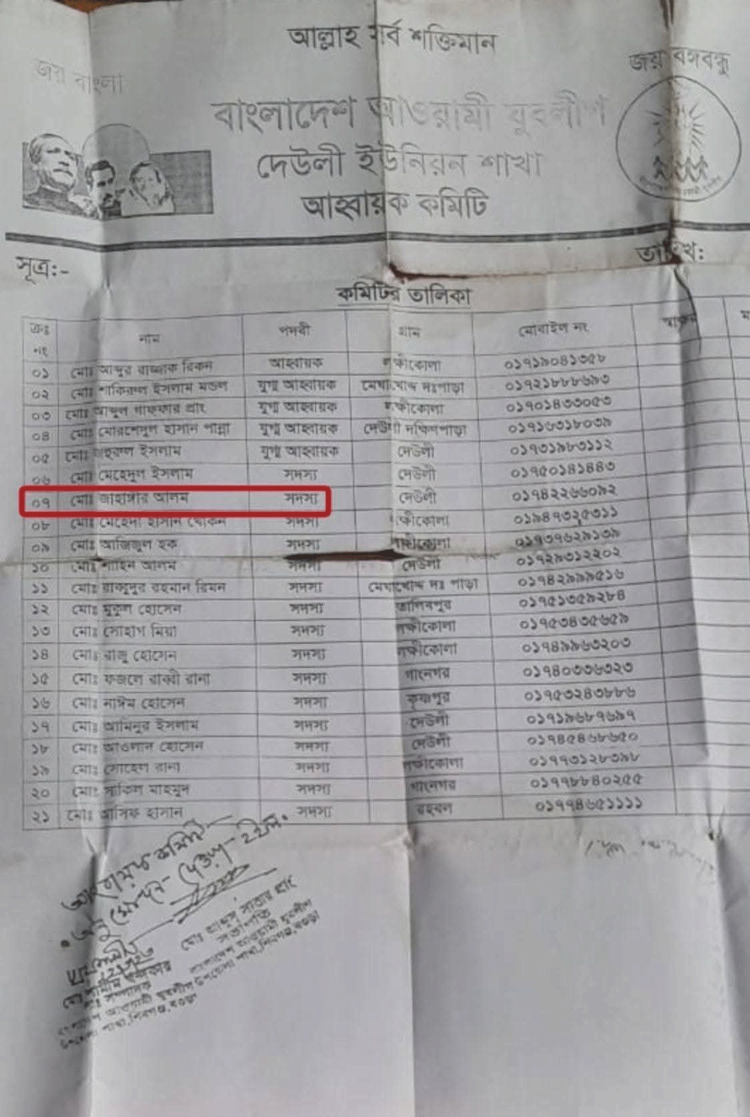 আল্লাহ সর্ব শক্তিমান
জয় বাংলা
জয় বঙ্গবন্ধু
বাংলাদেশ আওয়ামী যুবলীগ
দেউলী ইউনিয়ন শাখা
আহ্বায়ক কমিটি
সূত্র:-
তারিখ:
কমিটির তালিকা
ক্রঃ নং নাম পদবী গ্রাম মোবাইল নং
০১ মোঃ আব্দুর রাজ্জাক রিকন আহ্বায়ক লক্ষীকোলা ০১৭১৯০৪১৩৫৮
০২ মোঃ শাকিরুল ইসলাম মন্ডল যুগ্ম আহ্বায়ক ০১৭২১৮৮৮৬৯৩
০৩ মোঃ আব্দুল গাফ্ফার প্রাং যুগ্ম আহ্বায়ক লক্ষীকোলা ০১৭০১৪৩৩০৫৩
০৪ মোঃ মোরশেদুল হাসান পান্না যুগ্ম আহ্বায়ক দেউলী দক্ষিনপাড়া ০১৭১৬৩১৮০৩৯
০৫ মোঃ ইসলাম যুগ্ম আহ্বায়ক দেউলী ০১৭৩১৯৮৩১১২
০৬ মোঃ মেহেদুল ইসলাম সদস্য দেউলী ০১৭৫০১৪১৪৪৩
০৭ মোঃ জাহাঙ্গীর আলম সদস্য দেউলী ০১৭৪২২৬৬০৯২
০৮ মোঃ মেহেদী হাসান খোকন সদস্য লক্ষীকোলা ০১৯৪৭৩২৫৩১১
০৯ মোঃ আজিজুল হক সদস্য লক্ষীকোলা
১০ মোঃ শাহিন আলম সদস্য দেউলী ০১৭২৯৩১২২০২
১১ মোঃ রহমান রিমন সদস্য ০১৭৪২৯৯৯৫১৬
১২ মোঃ মুকুল হোসেন সদস্য তালিবপুর ০১৭৫১৩৫৯২৮৪
১৩ মোঃ সোহাগ মিয়া সদস্য লক্ষীকোলা ০১৭৫৩৪৩৫৬৫৯
১৪ মোঃ রাজু হোসেন সদস্য লক্ষীকোলা ০১৭৪৯৯৬৩২০৩
১৫ মোঃ ফজলে রাব্বী রানা সদস্য ০১৭৪০৩৩৬৩২৩
১৬ মোঃ নাঈম হোসেন সদস্য কৃষ্ণপুর ০১৭৫৩২৪৩৮৮৬
১৭ মোঃ আমিনুর ইসলাম সদস্য দেউলী ০১৭১৯৬৮৭৬৯৭
১৮ মোঃ আওলাদ হোসেন সদস্য দেউলী ০১৭৪৫৪৬৮৬৫০
১৯ মোঃ সোহেল রানা সদস্য লক্ষীকোলা ০১৭৭৩১২৮৩৯৮
২০ মোঃ সাকিল মাহমুদ সদস্য ০১৭৭৮৮৪০২৫৫
২১ মোঃ আসিফ হাসান সদস্য রহবল ০১৭৭৪৬৫১১১১
আহবায়ক কমিটি
অনুমোদন দেওয়া হইল।
মোঃ আব্দুস সাত্তার প্রাং
সভাপতি
বাংলাদেশ আওয়ামী যুবলীগ
উপজেলা শাখা, শিবগঞ্জ, বগুড়া
মোঃ শামীম
সাঃ সম্পাদক
বাংলাদেশ আওয়ামী যুবলীগ
উপজেলা শাখা, শিবগঞ্জ, বগুড়া